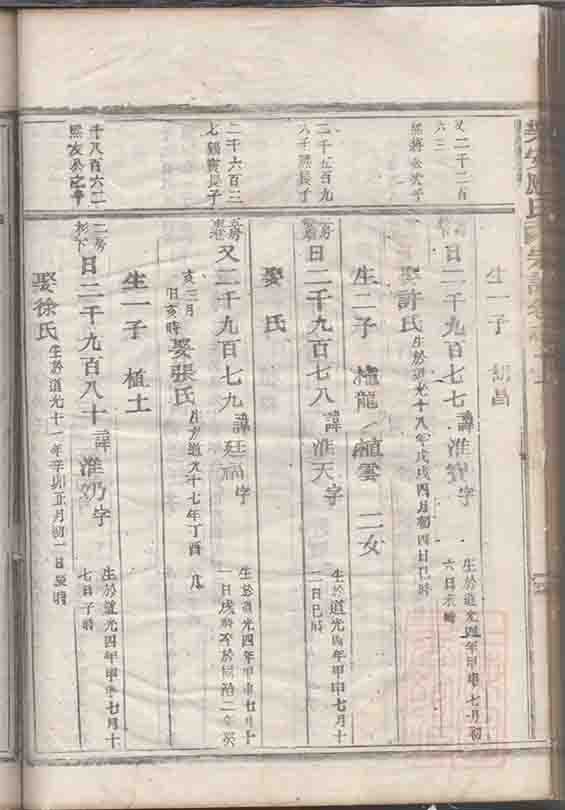 生一子
又二千二百
六三
熙將公次子
日二千九百七七諱淮寶字
生於道光四年甲申七月初
六日未時
娶許氏生於道光十八年戊戌四月初四日巳時
生二子 植龍 植雲 二女
二千五百九
八千熙長子
日二千九百七八諱淮天字
生於道光四年甲申七月十
二日巳時
娶氏
二千六百三
七 長子
又二千九百七九諱廷福字
生於道光四年甲申七月十
一日戌時卒於同治二年癸
亥三月
日亥時
娶張氏 道光十七年丁酉 月
生一子 植土
千八百六二
熙 公之子
二房
杉下
日二千九百八十諱淮奶字
生於道光四年甲申七月十
七日子時
娶徐氏生於道光十一年辛卯五月初一日 時